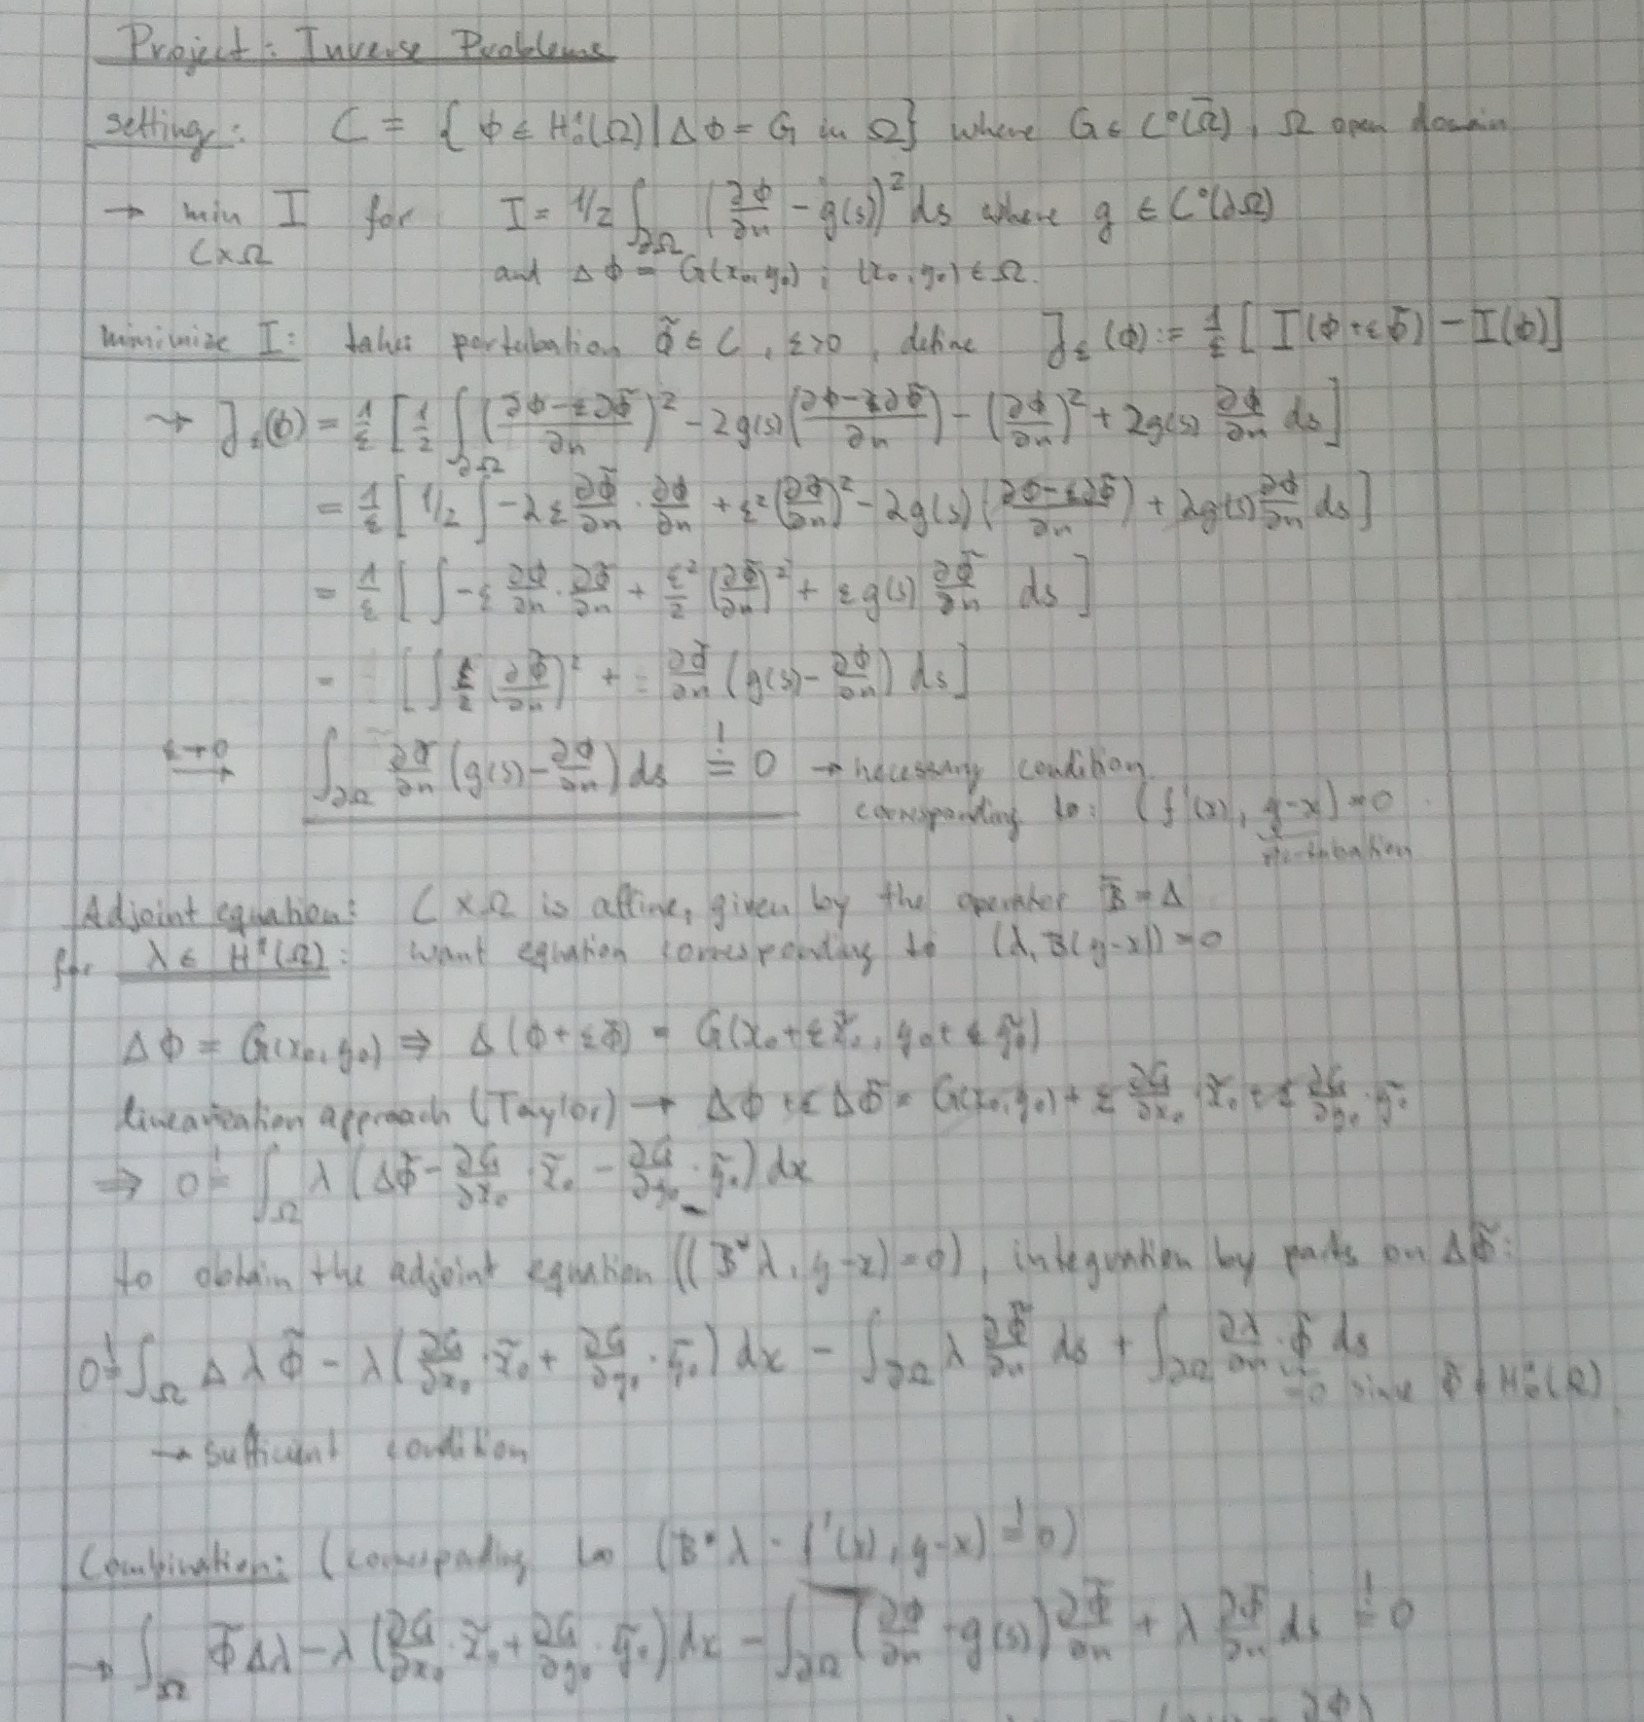 Project: Inverse Problems
setting: C = { ϕ ∈ H₀¹(Ω) | Δϕ = G in Ω} where G ∈ C⁰(Ω̄), Ω open domain
→ min I for I = 1/2 ∫_∂Ω (∂ϕ/∂n - g(s))² ds where g ∈ C⁰(∂Ω)
C×Ω and Δϕ = G(x₀,y₀) ; (x₀,y₀) ∈ Ω.
minimize I: takes pertubation ϕ̃ ∈ C, ε>0, define J_ε(ϕ) := 1/ε [ I(ϕ+εϕ̃) - I(ϕ)]
⇝ J_ε(ϕ) = 1/ε [ 1/2 ∫_∂Ω ((∂ϕ-ε∂ϕ̃)/∂n)² - 2g(s)((∂ϕ-ε∂ϕ̃)/∂n) - (∂ϕ/∂n)² + 2g(s) ∂ϕ/∂n ds]
= 1/ε [ 1/2 ∫ -2ε ∂ϕ̃/∂n · ∂ϕ/∂n + ε²(∂ϕ̃/∂n)² - 2g(s) ((∂ϕ-ε∂ϕ̃)/∂n) + 2g(s) ∂ϕ/∂n ds]
= 1/ε [ ∫ -ε ∂ϕ/∂n · ∂ϕ̃/∂n + ε²/2 (∂ϕ̃/∂n)² + εg(s) ∂ϕ̃/∂n ds ]
= [ ∫ ε/2 (∂ϕ̃/∂n)² + ∂ϕ̃/∂n (g(s) - ∂ϕ/∂n) ds]
ε→0 ⟶ ∫_∂Ω ∂ϕ̃/∂n (g(s) - ∂ϕ/∂n) ds =! 0 → necessary condition
corresponding to: (f'(x), y-x) = 0
pertubation
Adjoint equation: C×Ω is affine, given by the operator B = Δ
for λ ∈ H¹(Ω): want equation corresponding to (λ, B(y-x)) = 0
Δϕ = G(x₀,y₀) ⇒ Δ(ϕ+εϕ̃) = G(x₀+εx̃₀, y₀+εỹ₀)
linearication approach (Taylor) → Δϕ + εΔϕ̃ = G(x₀,y₀) + ε ∂G/∂x₀ · x̃₀ + ε ∂G/∂y₀ · ỹ₀
⇒ 0 =! ∫_Ω λ (Δϕ̃ - ∂G/∂x₀ · x̃₀ - ∂G/∂y₀ · ỹ₀) dx
to obtain the adjoint equation ((B*λ, y-x) = 0), integration by parts on Δϕ̃:
0 =! ∫_Ω Δλ ϕ̃ - λ(∂G/∂x₀ · x̃₀ + ∂G/∂y₀ · ỹ₀) dx - ∫_∂Ω λ ∂ϕ̃/∂n ds + ∫_∂Ω ∂λ/∂n · ϕ̃ ds
=0 since ϕ̃ ∈ H₀¹(Ω)
→ sufficient condition
Combination: (corresponding to (B*λ - f'(x), y-x) =! 0)
→ ∫_Ω ϕ̃Δλ - λ(∂G/∂x₀ · x̃₀ + ∂G/∂y₀ · ỹ₀) dx - ∫_∂Ω (∂ϕ/∂n - g(s)) ∂ϕ̃/∂n + λ ∂ϕ̃/∂n ds =! 0